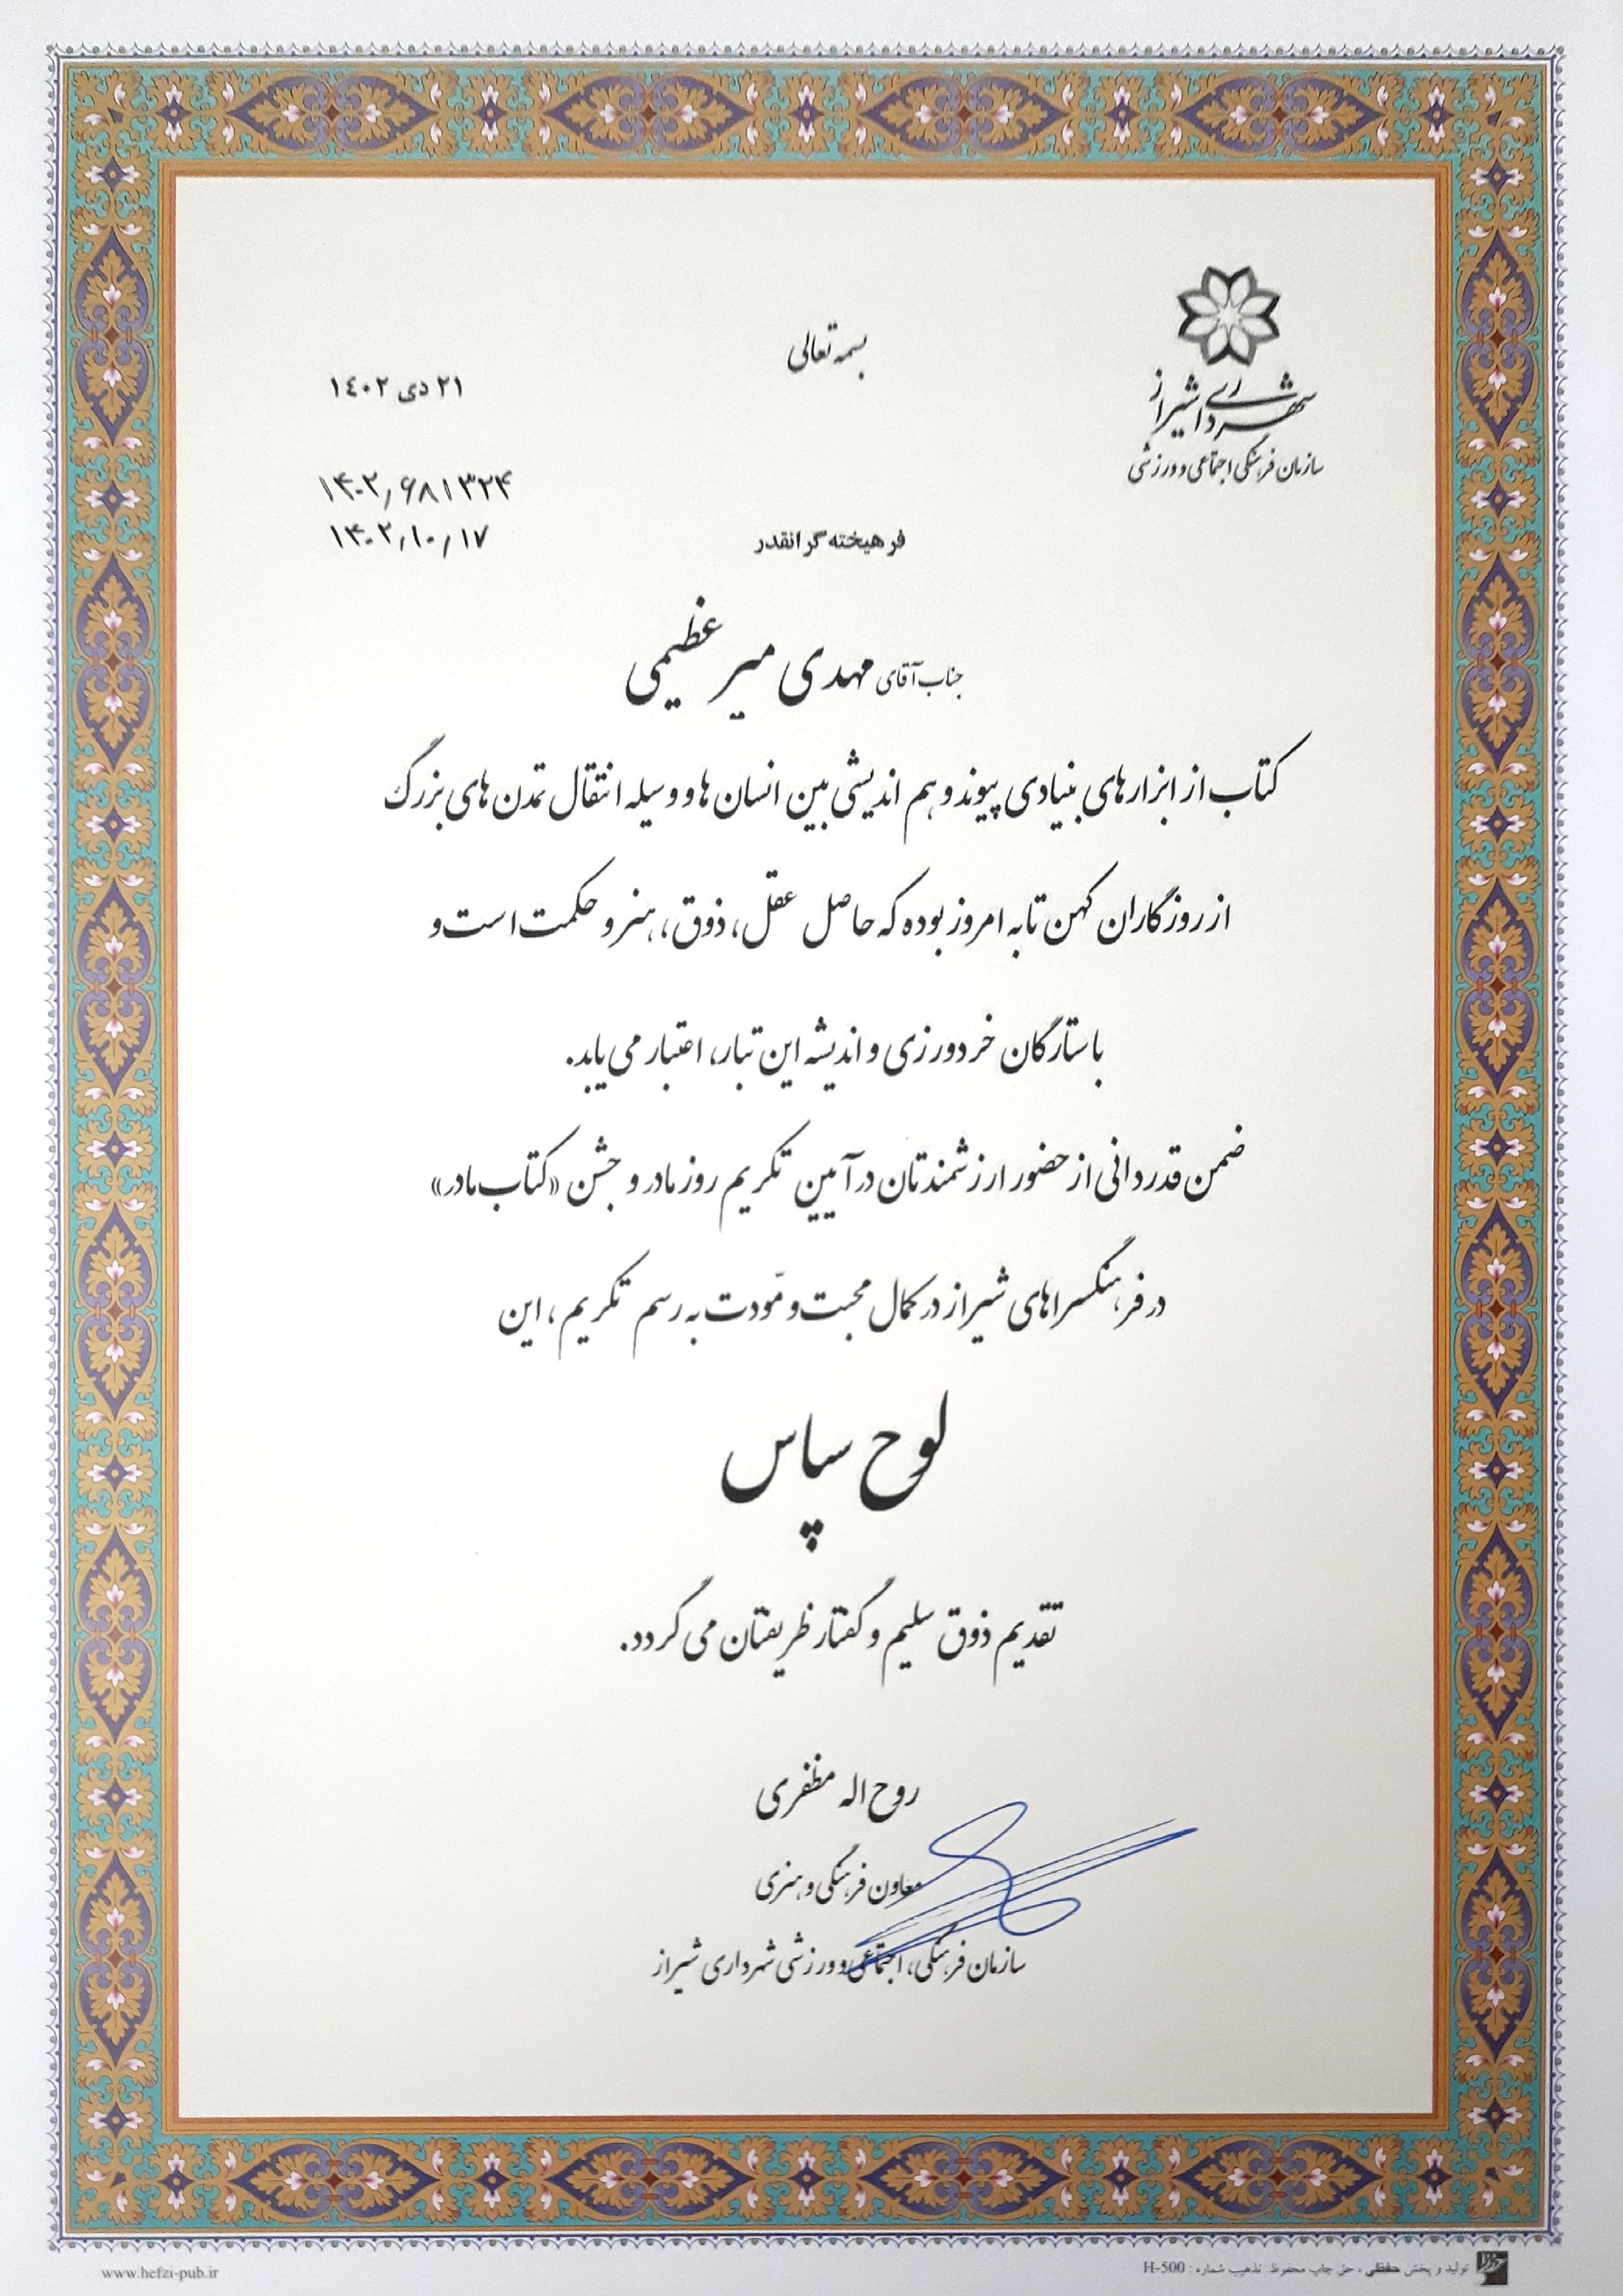 بسمه تعالی
شهرداری شیراز
سازمان فرهنگی اجتماعی و ورزشی
۲۱ دی ۱۴۰۲
۱۴۰۲٫۶۸۱۳۲۴
۱۴۰۲٫۱۰٫۱۷
فرهیخته گرانقدر
جناب آقای مهدی میر عظیمی
کتاب از ابزارهای بنیادی پیوند و هم اندیشی بین انسان ها و وسیله انتقال تمدن های بزرگ
از روزگاران کهن تا به امروز بوده که حاصل عقل، ذوق، هنر و حکمت است و
با ستارگان خردورزی و اندیشه این تبار، اعتبار می یابد.
ضمن قدردانی از حضور ارزشمندتان در آیین تکریم روز مادر و جشن «کتاب مادر»
در فرهنگسراهای شیراز در کمال محبت و مودّت به رسم تکریم، این
لوح سپاس
تقدیم ذوق سلیم و گفتار ظریفتان می گردد.
روح اله مظفری
معاون فرهنگی و هنری
سازمان فرهنگی، اجتماعی و ورزشی شهرداری شیراز
تولید و پخش حفظی ، حق چاپ محفوظ. تذهیب شماره : H-500
www.hefzi-pub.ir